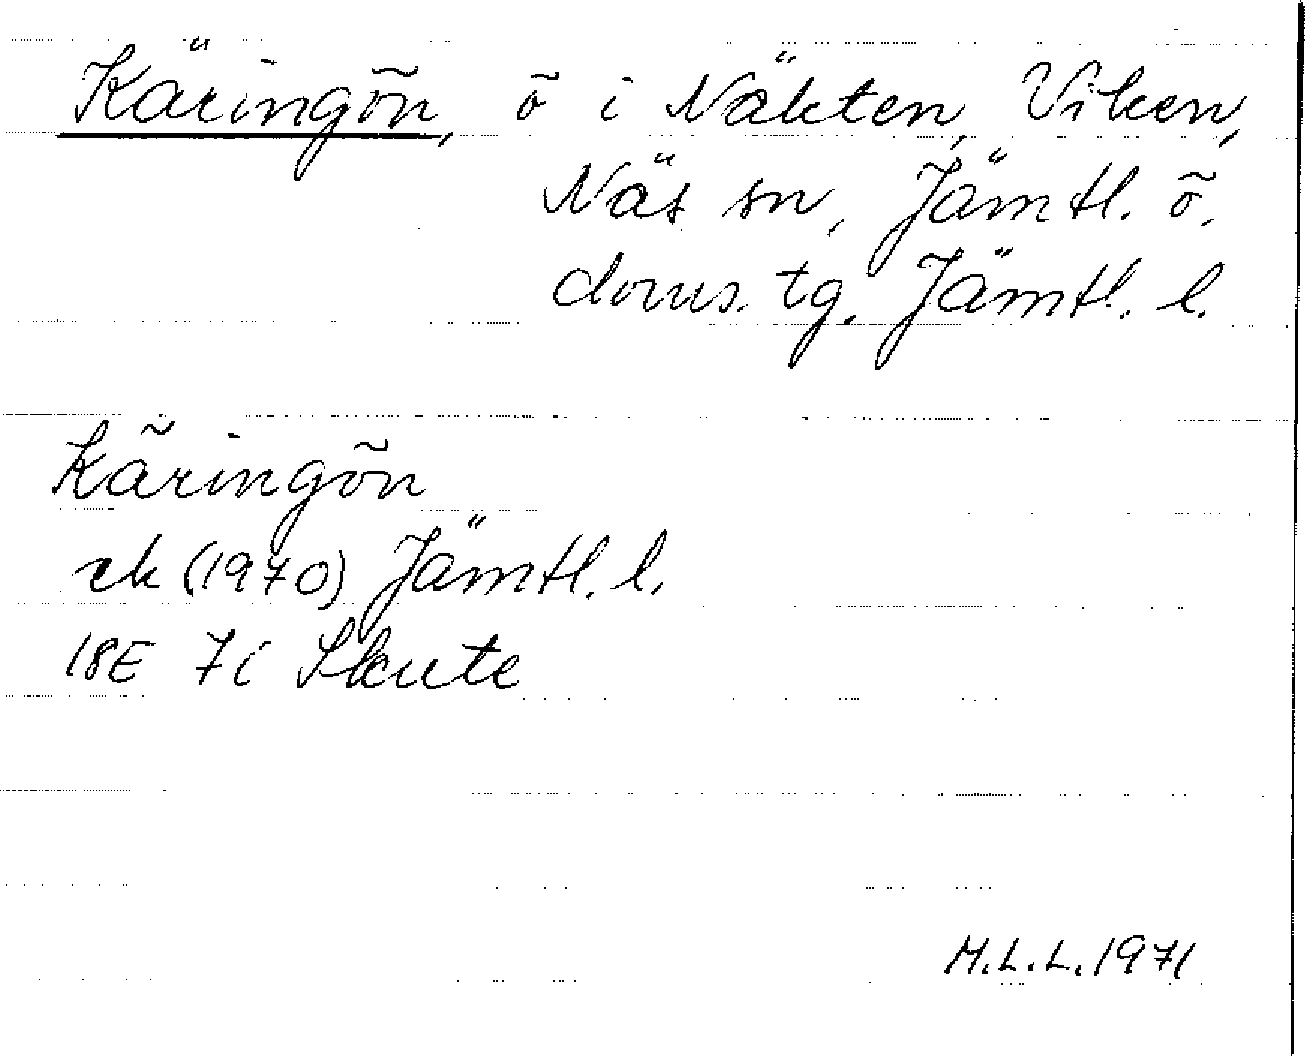 Käringön, ö i Näkten, Viken,
Näs sn, Jämtl. ö.
doms. tg. Jämtl. l.
Käringön
rk (1970) Jämtl. l.
18E 7i Skute
M.L.L. 1971